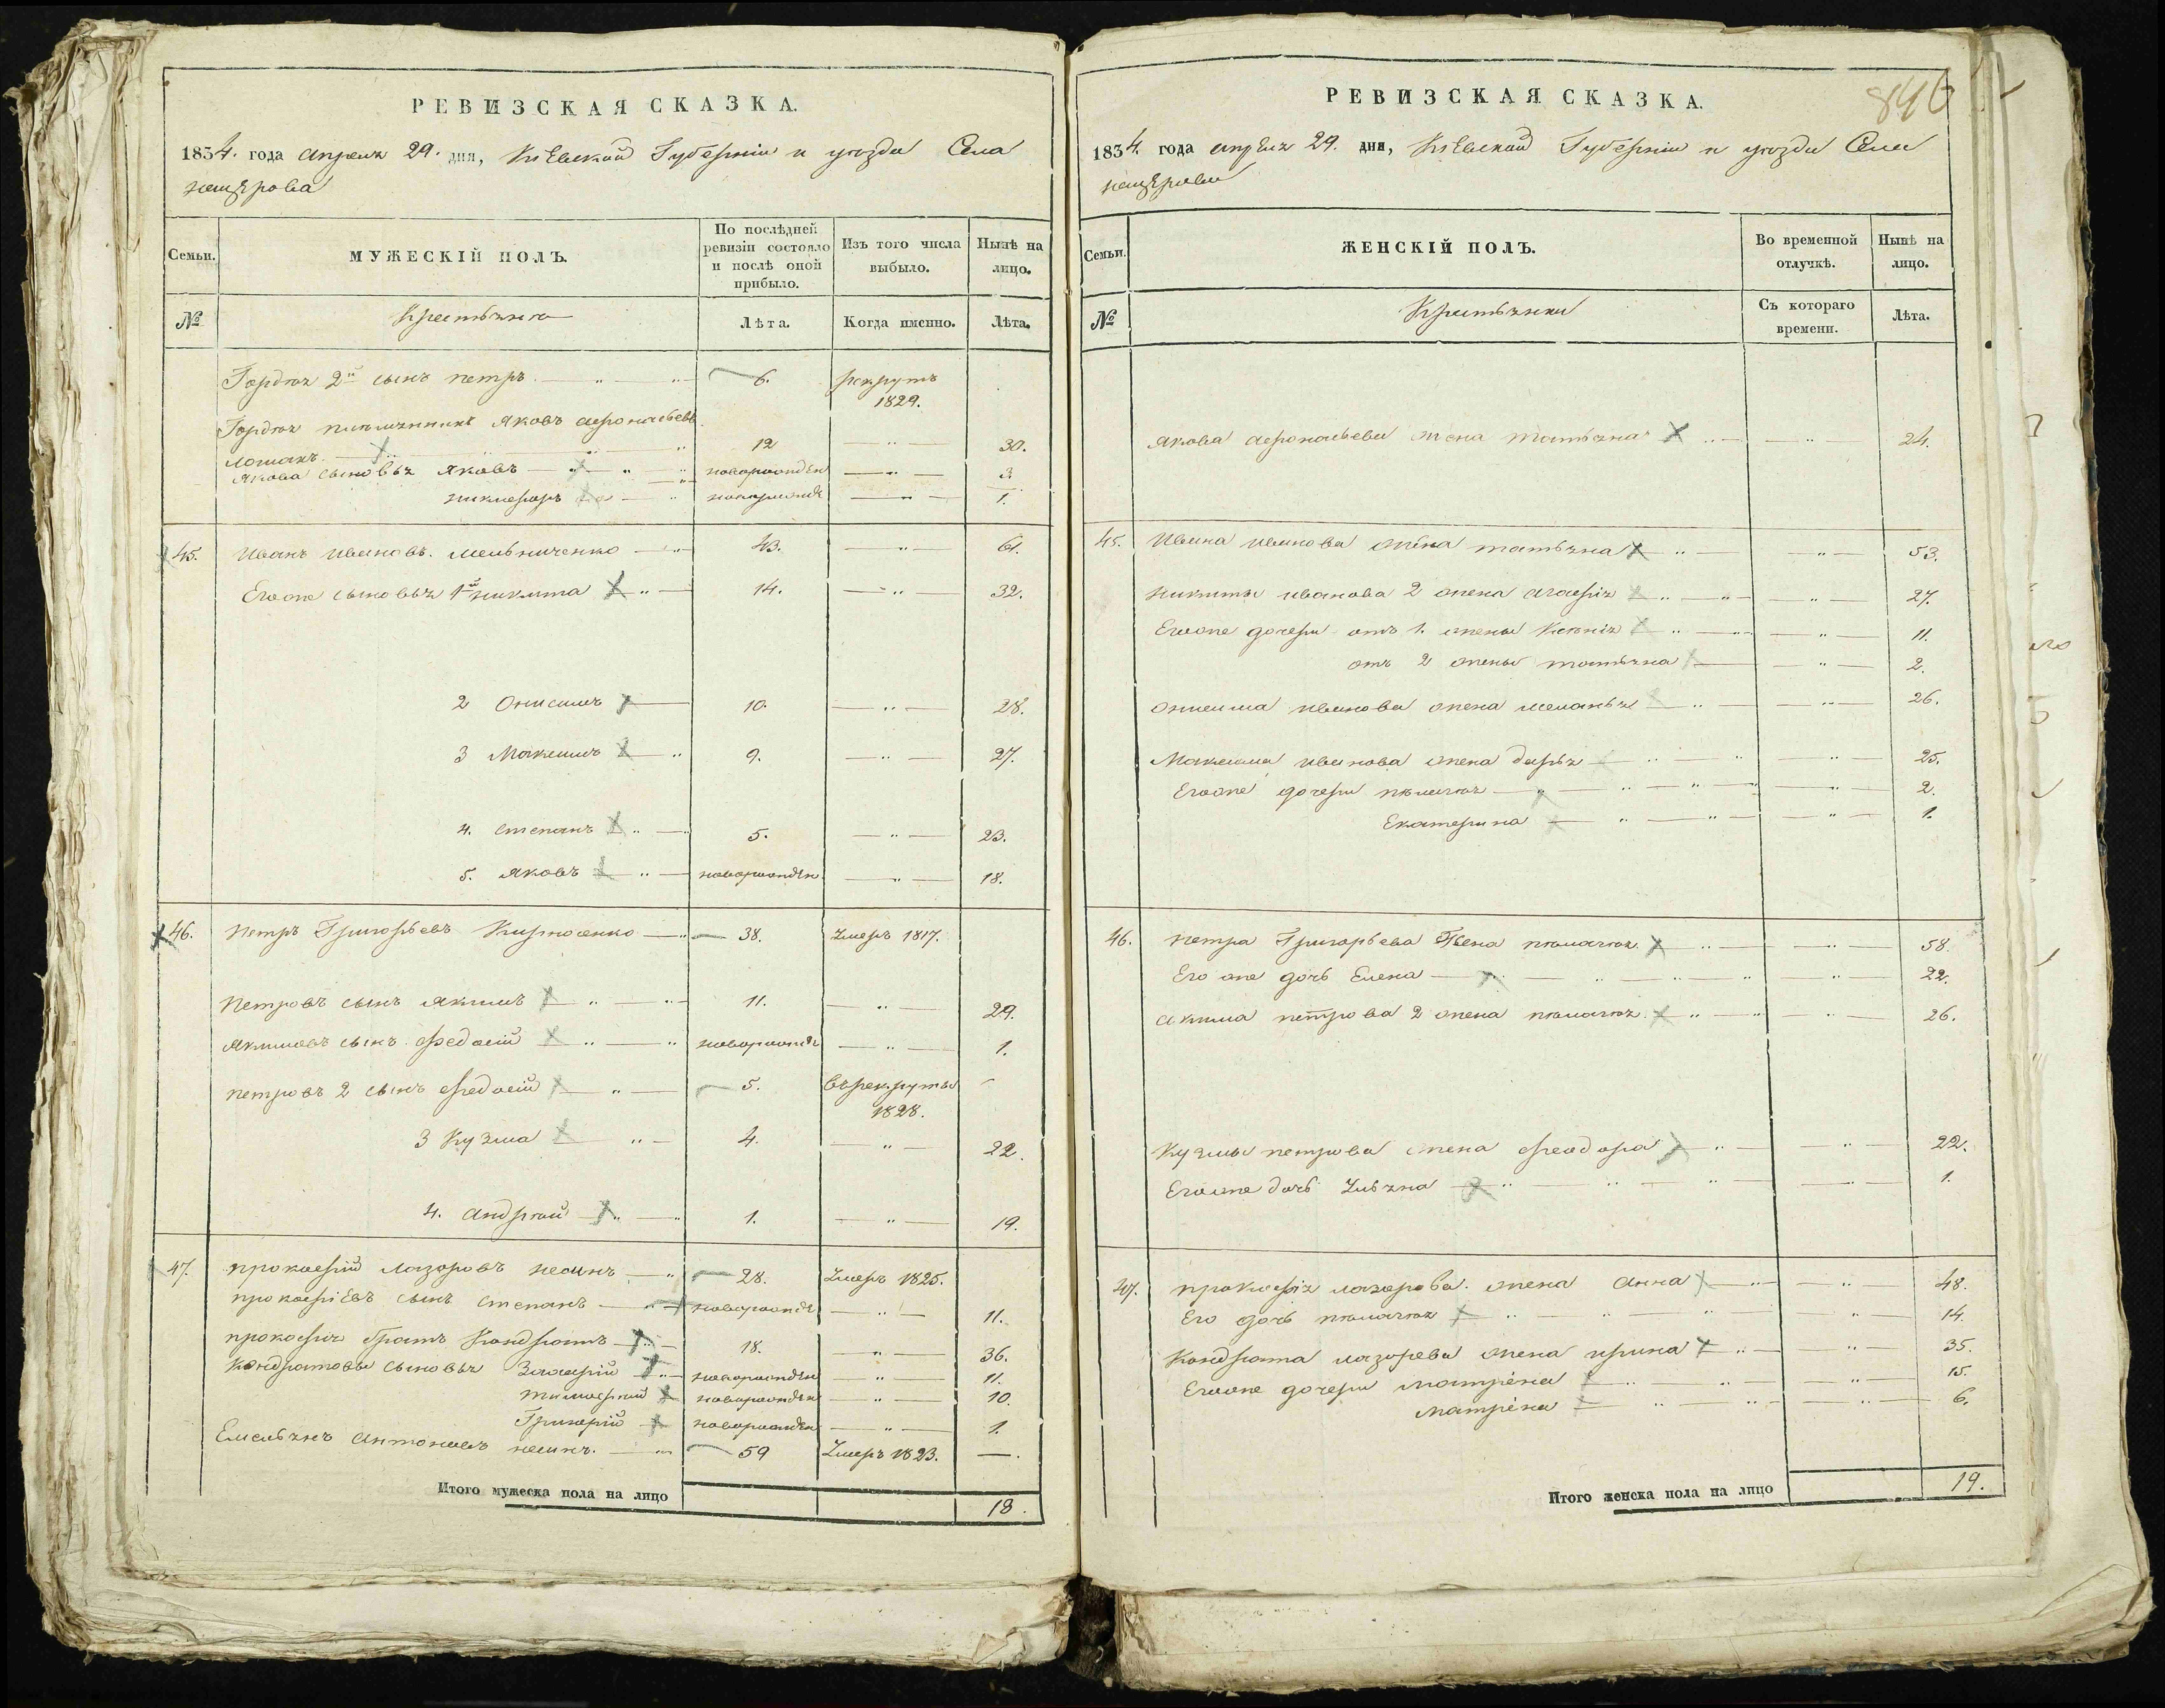 РЕВИЗСКАЯ СКАЗКА.
1834. года апреля 29. дня, Кіевской Губерніи и уезда Села
нещерова
Семьи.
МУЖЕСКІЙ ПОЛЪ.
По послѣдней ревизіи состояло и послѣ оной прибыло.
Изъ того числа выбыло.
Нынѣ на лицо.
№
Крестьяне
Лѣта.
Когда именно.
Лѣта.
Гордея 2й сынъ петръ 6. рекрутъ
1829.
Гордея племянникъ Яковъ афонасьевъ
12 30.
Якова сыновья Яковъ новорожден 3.
никифоръ новорожде 1.
45. Иванъ Ивановъ Мельниченко 43. 61.
Егоже сыновья 1й никита 14. 32.
2 Онисимъ 10. 28.
3 Максимъ 9. 27.
4. степанъ 5. 23.
5. Яковъ новорожден 18.
46. петръ Григорьевъ 38. Умеръ 1817.
петровъ сынъ якимъ 11. 29.
Якимовъ сынъ федосій новорожде 1.
петровъ 2 сынъ федосій 5. въ рекруты
1828.
3 Кузма 4. 22.
4. андрей 1. 19.
47. прокофій лазаровъ 28. Умеръ 1825.
прокофіевъ сынъ степанъ новорожде 11.
прокофія братъ Кондратъ 18. 36.
Кондратовы сыновья Захарій новорожден 11.
тимофей новорожден 10.
Григорій новорожден 1.
Емельянъ антоновъ 59 Умеръ 1823.
Итого мужеска пола на лицо 18.
846
РЕВИЗСКАЯ СКАЗКА.
1834. года апреля 29. дня, Кіевской Губерніи и уезда Села
нещерова
Семьи.
ЖЕНСКІЙ ПОЛЪ.
Во временной отлучкѣ.
Нынѣ на лицо.
№
Крестьянки
Съ котораго времени.
Лѣта.
Якова афонасьева жена татьяна 24.
45. Ивана иванова жена татьяна 53.
никиты иванова 2 жена агафія 27.
Егоже дочери отъ 1. жены Ксенія 11.
отъ 2 жены татьяна 2.
онисима иванова жена меланья 26.
Максима иванова жена дарья 25.
Егоже дочери пелагея 2.
Екатерина 1.
46. петра Григорьева жена пелагея 58.
Его же дочь Елена 22.
акима петрова 2 жена пелагея 26.
Кузмы петрова жена феодора 22.
Егоже дочь Ульяна 1.
47. прокофія лазарова жена анна 48.
Его дочь пелагея 14.
Кондрата лазорева жена ирина 35.
Егоже дочери матрена 15.
матрена 6.
Итого женска пола на лицо 19.